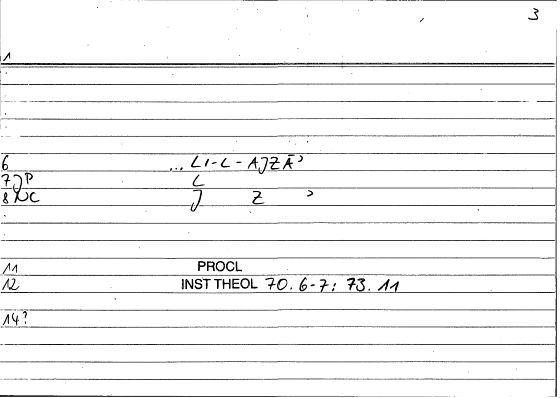 3
1
6 ... LI-L-AJZĀʾ
7 JP L
8 NC J Z ʾ
11 PROCL
12 INST THEOL 70.6-7: 73.11
14?